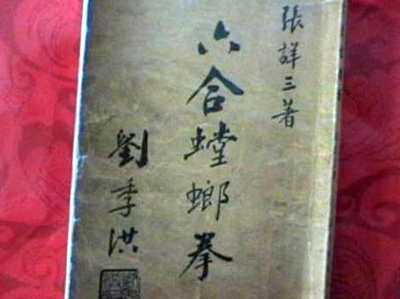 張詳三著
六合螳螂拳
劉季洪